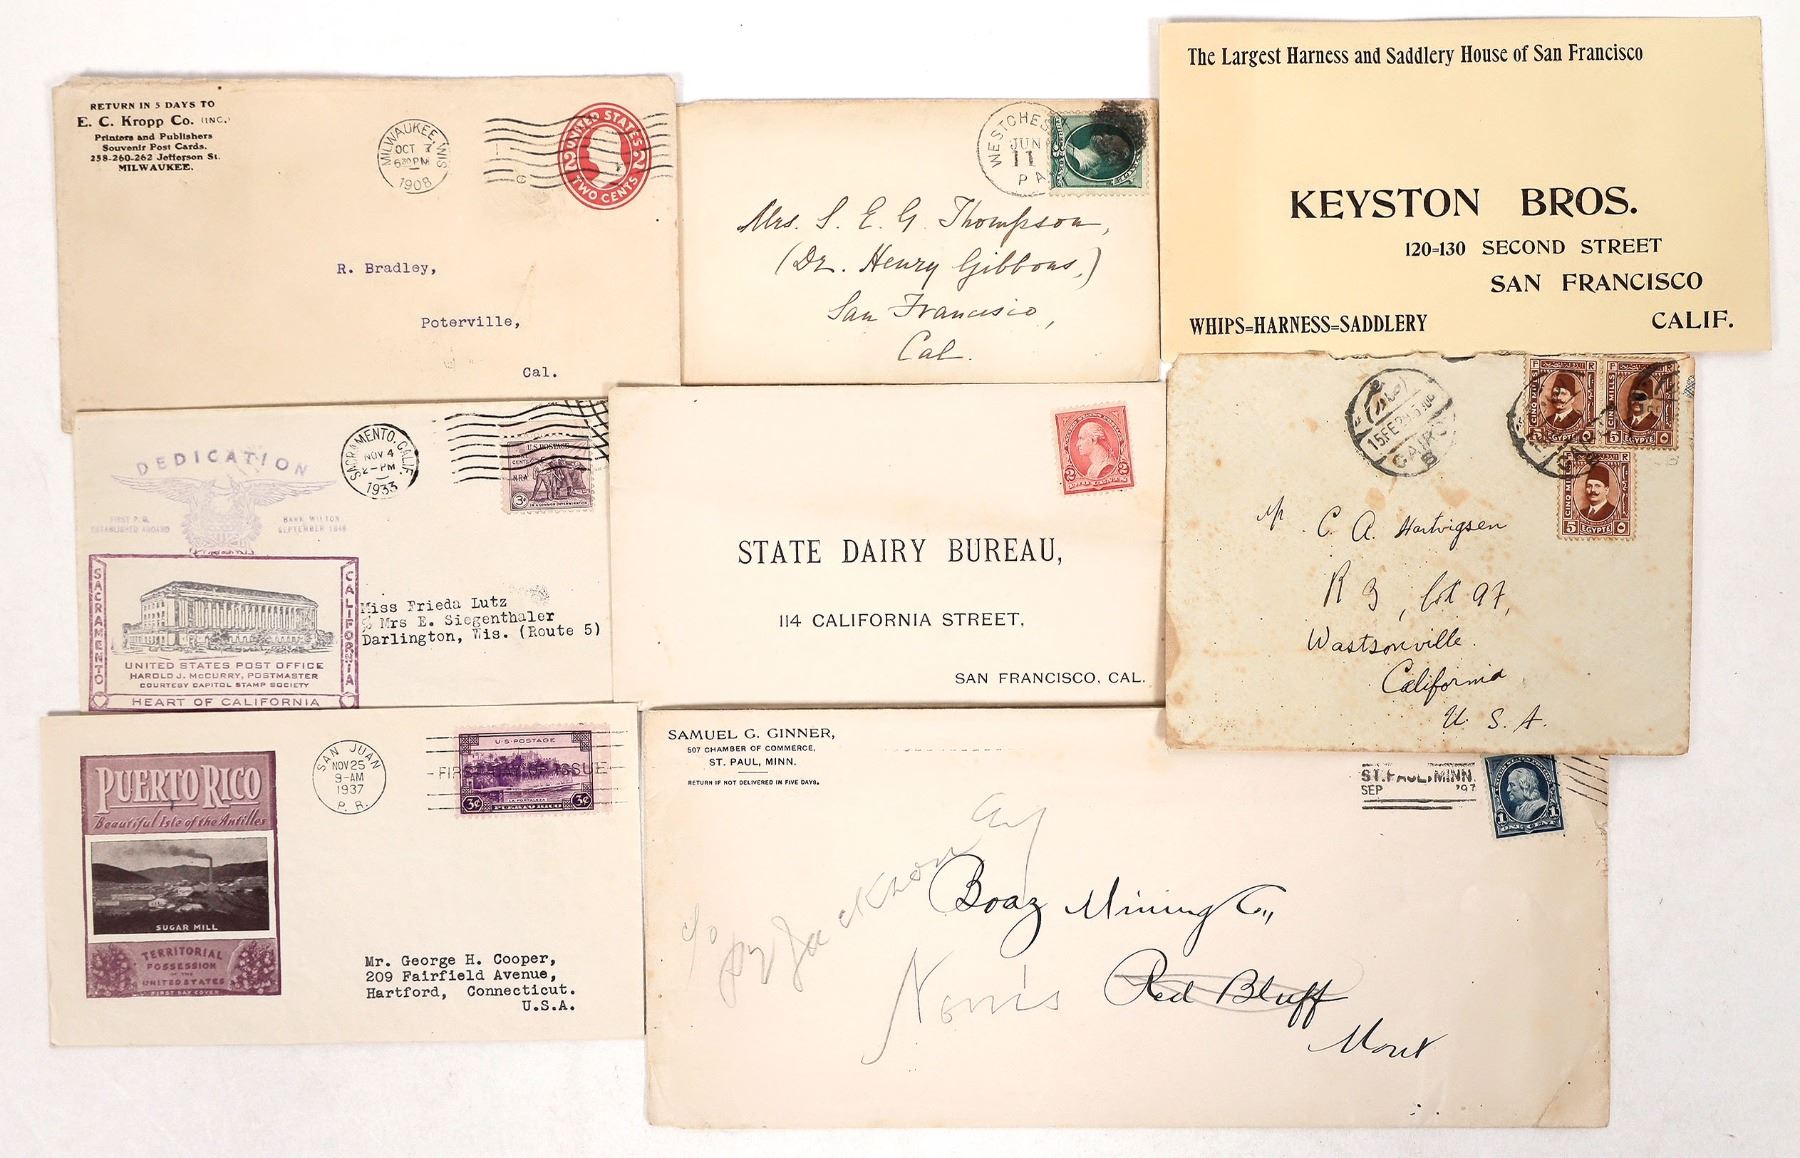 RETURN IN 5 DAYS TO
E. C. Kropp Co. (INC.)
Printers and Publishers
Souvenir Post Cards.
258-260-262 Jefferson St.
MILWAUKEE.
MILWAUKEE, WIS
OCT 7
630 PM
1908
UNITED STATES
2 2
TWO CENTS
R. Bradley,
Poterville,
Cal.
WESTCHES
JUN
11
PA
Mrs. S. E. G. Thompson,
(Dr. Henry Gibbons,)
San Francisco,
Cal.
The Largest Harness and Saddlery House of San Francisco
KEYSTON BROS.
120=130 SECOND STREET
SAN FRANCISCO
WHIPS=HARNESS=SADDLERY
CALIF.
DEDICATION
FIRST P. O.
ESTABLISHED ABOARD
BARK WILTON
SEPTEMBER 1849
SACRAMENTO, CALIF.
NOV 4
2-PM
1933
U.S. POSTAGE
CENTS
NRA
3¢
SACRAMENTO
CALIFORNIA
UNITED STATES POST OFFICE
HAROLD J. McCURRY, POSTMASTER
COURTESY CAPITOL STAMP SOCIETY
HEART OF CALIFORNIA
Miss Frieda Lutz
% Mrs E. Siegenthaler
Darlington, Wis. (Route 5)
2 2
STATE DAIRY BUREAU,
114 CALIFORNIA STREET,
SAN FRANCISCO, CAL.
15 FE 29 5.00
CAIRO
CINQ MILLES
5 EGYPTE ٥
CINQ MILLES
5 EGYPTE ٥
CINQ MILLES
5 EGYPTE ٥
Mr C. A. Hartvigsen
R 3, Box 97,
Wastsonville.
California
U. S. A.
PUERTO RICO
Beautiful Isle of the Antilles
SUGAR MILL
TERRITORIAL
POSSESSION
OF THE
UNITED STATES
FIRST DAY COVER
SAN JUAN
NOV 25
9-AM
1937
P. R.
FIRST DAY OF ISSUE
U.S. POSTAGE
LA FORTALEZA
3¢ PUERTO RICO 3¢
Mr. George H. Cooper,
209 Fairfield Avenue,
Hartford, Connecticut.
U.S.A.
SAMUEL G. GINNER,
507 CHAMBER OF COMMERCE,
ST. PAUL, MINN.
RETURN IF NOT DELIVERED IN FIVE DAYS.
ST. PAUL, MINN.
SEP '97
1 1
ONE CENT
c/o
Jackson
Boaz Mining Co.,
Norris
Red Bluff
Mont